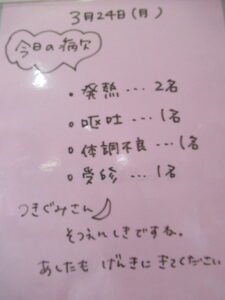 3月24日(月)
今日の病欠
・発熱…2名
・嘔吐…1名
・体調不良…1名
・受診…1名
つきぐみさん
そつえんしきですね。
あしたも げんきに きてください